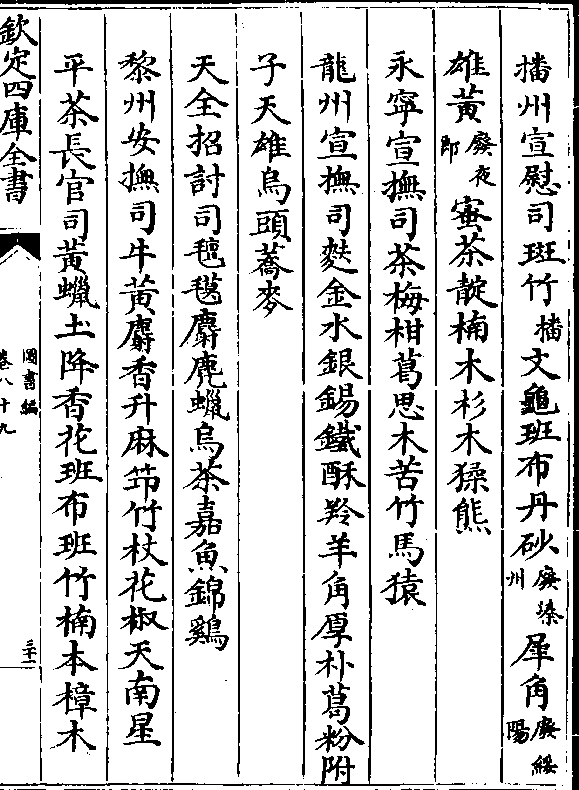 播州宣慰司斑竹播文龜班布丹砂廢溱州犀角廢綏陽
雄黃廢夜郎蜜茶靛楠木杉木猱熊
永寧宣撫司茶梅柑葛思木苦竹馬猿
龍州宣撫司麩金水銀錫鐵酥羚羊角厚朴葛粉附
子天雄烏頭蕎麥
天全招討司氆氇麝鹿蠟烏茶嘉魚錦鷄
黎州安撫司牛黃麝香升麻笻竹杖花椒天南星
平茶長官司黃蠟土降香花班布班竹楠本樟木
欽定四庫全書
圖書編
卷八十九
三十二